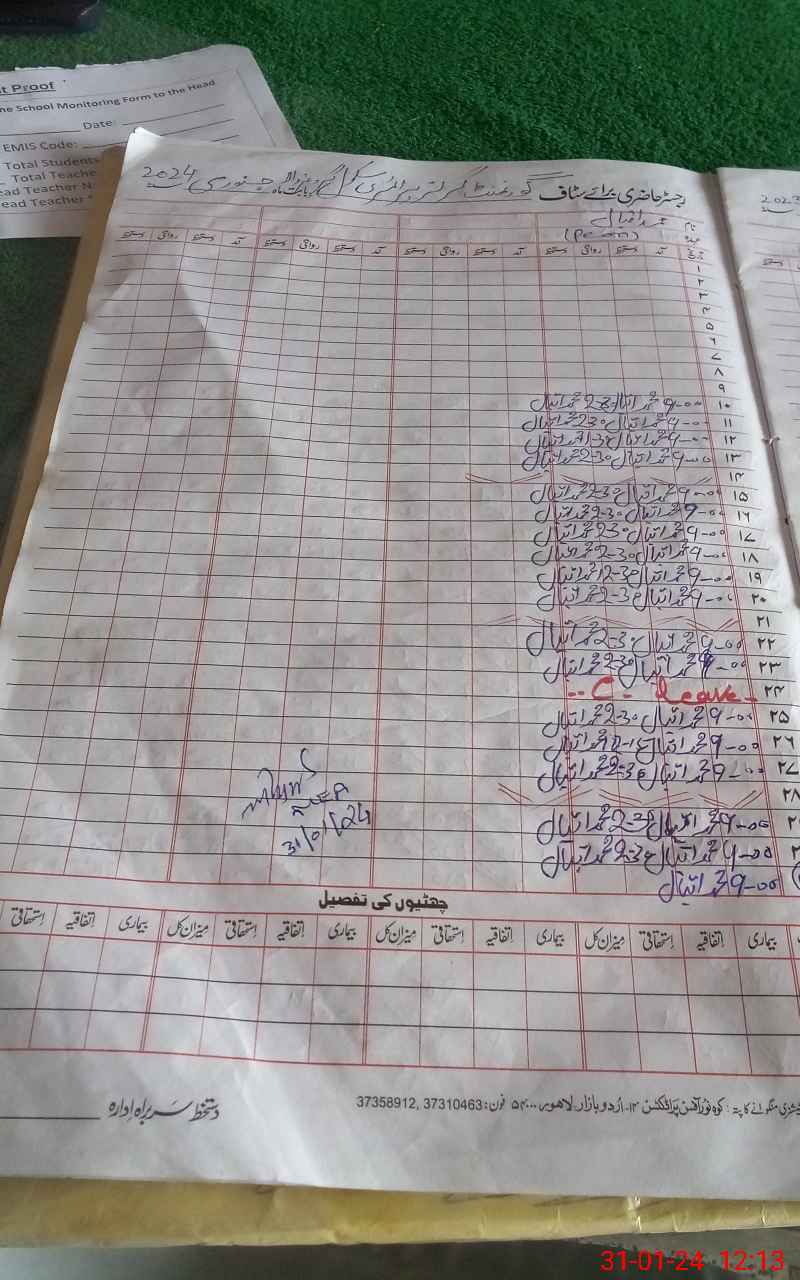 t Proof
ne School Monitoring Form to the Head
Date:
EMIS Code:
Total Students
Total Teache
ead Teacher N
ead Teacher
رجسٹر حاضری برائے سٹاف گورنمنٹ گرلز پرائمری سکول بابت ماہ جنوری 2024
2023
نام محمد اقبال
عہدہ (Peon)
تاریخ آمد دستخط روانگی دستخط آمد دستخط روانگی دستخط آمد دستخط روانگی دستخط آمد دستخط روانگی دستخط
۱
۲
۳
۴
۵
۶
۷
۸
۹
۱۰ 9-00 محمد اقبال محمد اقبال
۱۱ 9-00 محمد اقبال 2-30 محمد اقبال
۱۲ 9-00 محمد اقبال محمد اقبال
۱۳ 9-00 محمد اقبال 2-30 محمد اقبال
۱۴
۱۵ 9-00 محمد اقبال 2-30 محمد اقبال
۱۶ 9-00 محمد اقبال 2-30 محمد اقبال
۱۷ 9-00 محمد اقبال 2-30 محمد اقبال
۱۸ 9-00 محمد اقبال 2-30 محمد اقبال
۱۹ 9-00 محمد اقبال محمد اقبال
۲۰ 9-00 محمد اقبال 2-30 محمد اقبال
۲۱
۲۲ 9-00 محمد اقبال 2-30 محمد اقبال
۲۳ 9-00 محمد اقبال 2-30 محمد اقبال
۲۴ -- C - leave -
۲۵ 9-00 محمد اقبال 2-30 محمد اقبال
۲۶ 9-00 محمد اقبال محمد اقبال
۲۷ 9-00 محمد اقبال 2-30 محمد اقبال
۲۸
9-00 محمد اقبال 2-30 محمد اقبال
9-00 محمد اقبال 2-30 محمد اقبال
9-00 محمد اقبال
31/01/24
چھٹیوں کی تفصیل
بیماری اتفاقیہ استحقاقی میزان کل بیماری اتفاقیہ استحقاقی میزان کل بیماری اتفاقیہ استحقاقی میزان کل بیماری اتفاقیہ استحقاقی
منگوانے کا پتہ: کوہ نور آفسٹ پراڈکٹس ۱۳- اردو بازار لاہور۔۔۔۵۴ فون: 37310463 ,37358912
دستخط سربراہ ادارہ
31-01-24 12:13